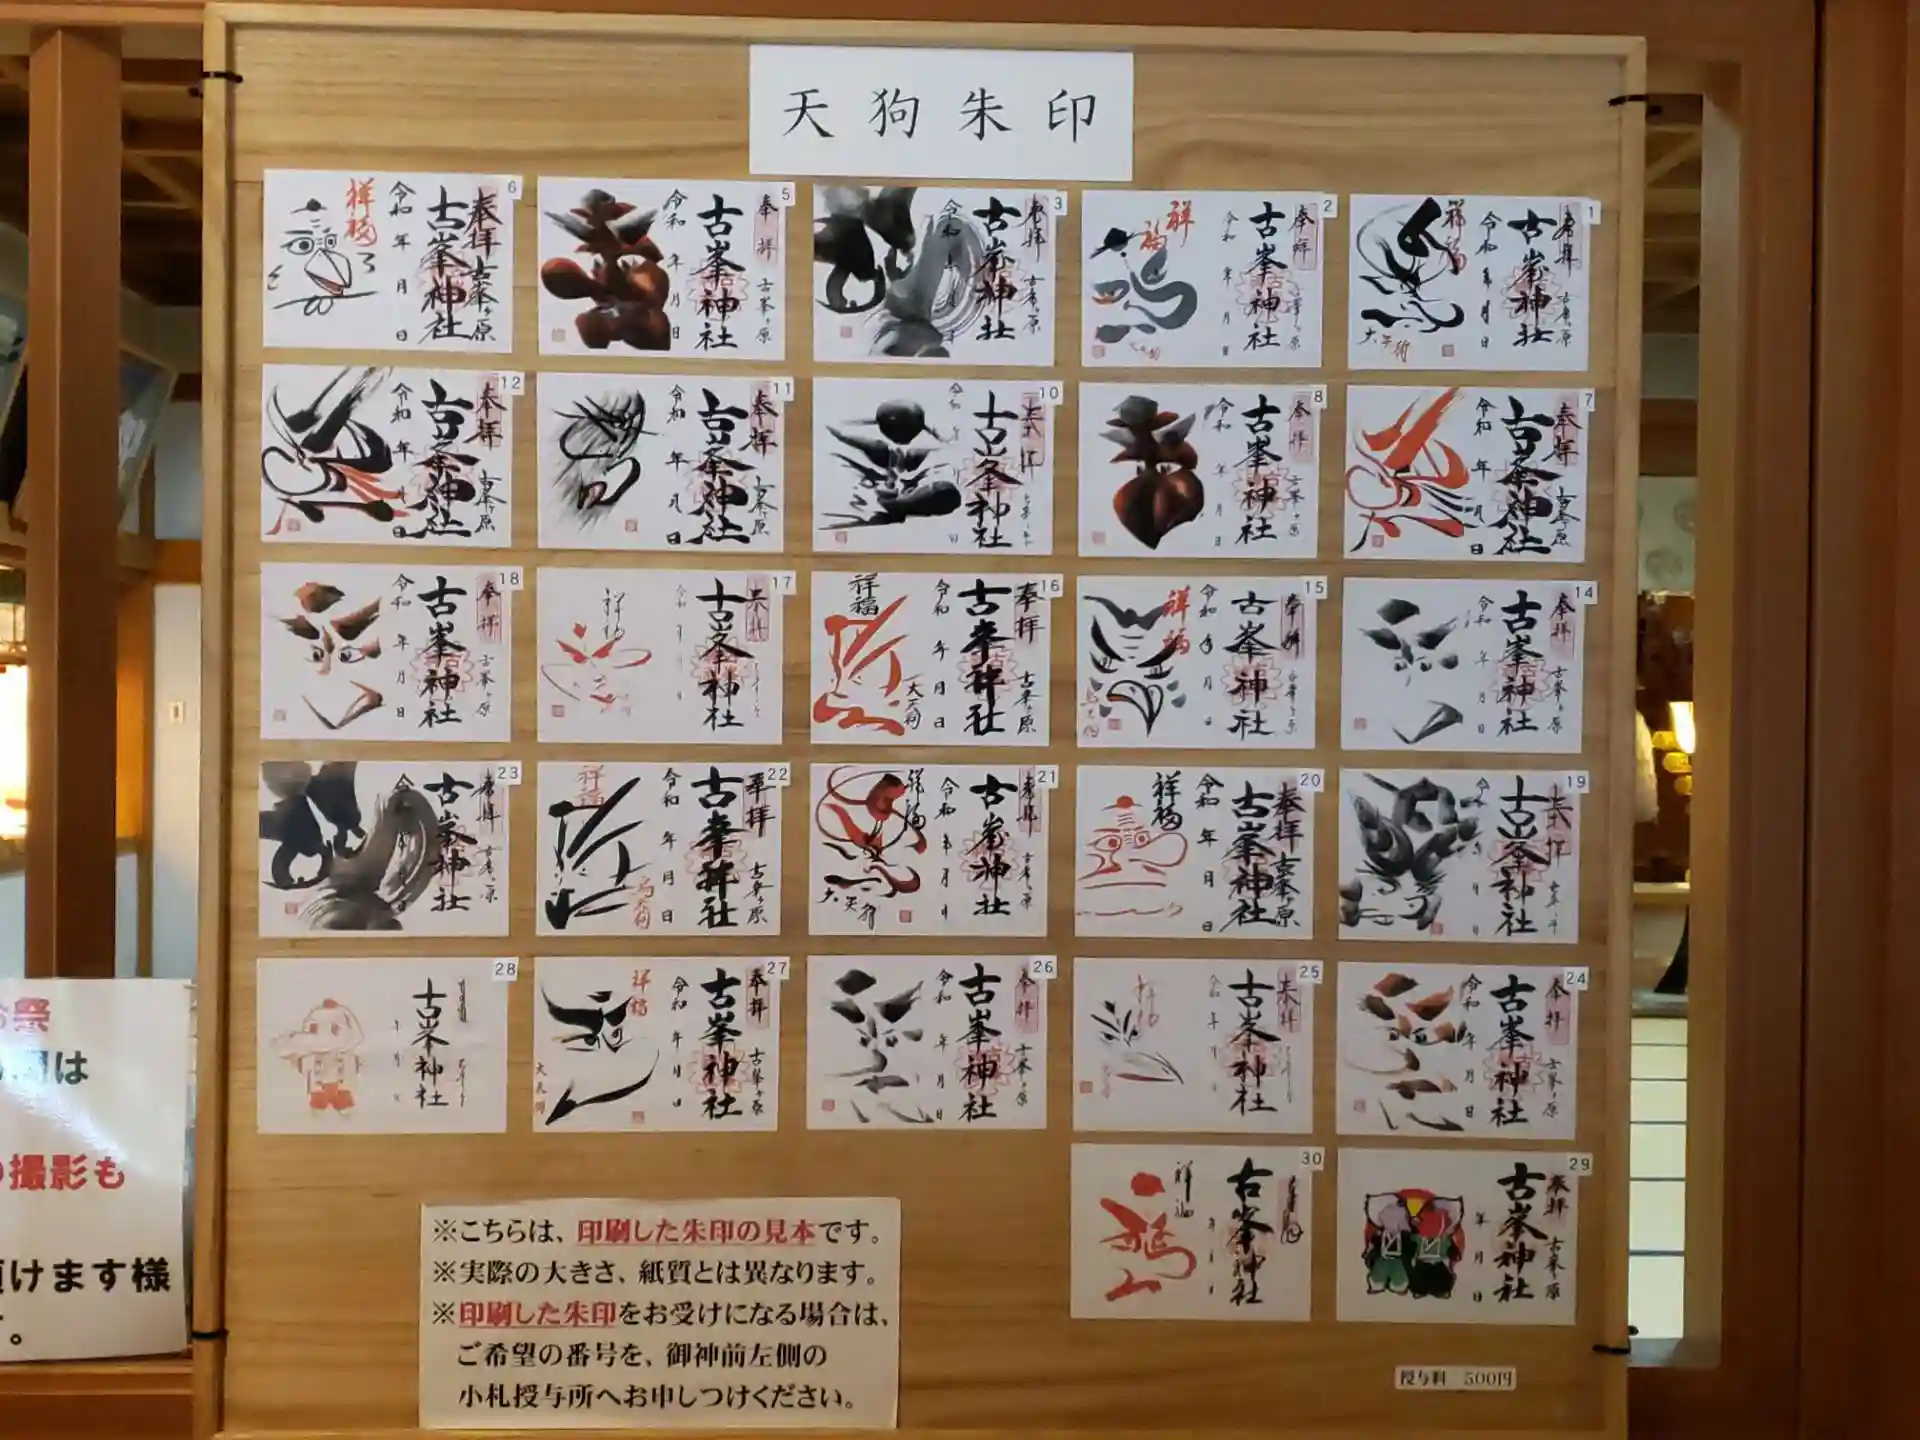 天狗朱印
6
祥福
令和 年 月 日
古峯神社
奉拝
古峯ヶ原
5
令和 年 月 日
古峯神社
奉拝
古峯ヶ原
3
令和
古峯神社
奉拝
古峯ヶ原
2
祥福
令和 年 月 日
古峯神社
奉拝
古峯ヶ原
1
祥福
令和 年 月 日
古峯神社
奉拝
古峯ヶ原
大天狗
12
令和 年 月 日
古峯神社
奉拝
古峯ヶ原
11
令和 年 月 日
古峯神社
奉拝
古峯ヶ原
10
古峯神社
8
令和 年 月 日
古峯神社
奉拝
古峯ヶ原
7
令和 年 月 日
古峯神社
奉拝
古峯ヶ原
18
令和 年 月 日
古峯神社
奉拝
古峯ヶ原
17
祥福
古峯神社
奉拝
16
祥福
令和 年 月 日
古峯神社
奉拝
古峯ヶ原
大天狗
15
祥福
令和 年 月 日
古峯神社
奉拝
古峯ヶ原
烏天狗
14
令和 年 月 日
古峯神社
奉拝
古峯ヶ原
23
古峯神社
奉拝
古峯ヶ原
22
祥福
令和 年 月 日
古峯神社
奉拝
古峯ヶ原
烏天狗
21
祥福
令和 年 月 日
古峯神社
奉拝
古峯ヶ原
大天狗
20
祥福
令和 年 月 日
古峯神社
奉拝
古峯ヶ原
19
古峯神社
28
古峯神社
27
祥福
令和 年 月 日
古峯神社
奉拝
古峯ヶ原
大天狗
26
令和 年 月 日
古峯神社
奉拝
古峯ヶ原
25
古峯神社
奉拝
24
令和 年 月 日
古峯神社
奉拝
古峯ヶ原
30
祥福
古峯神社
29
年 月 日
古峯神社
奉拝
古峯ヶ原
※こちらは、印刷した朱印の見本です。
※実際の大きさ、紙質とは異なります。
※印刷した朱印をお受けになる場合は、
ご希望の番号を、御神前左側の
小札授与所へお申しつけください。
授与料 500円
祭
は
撮影も
けます様
。